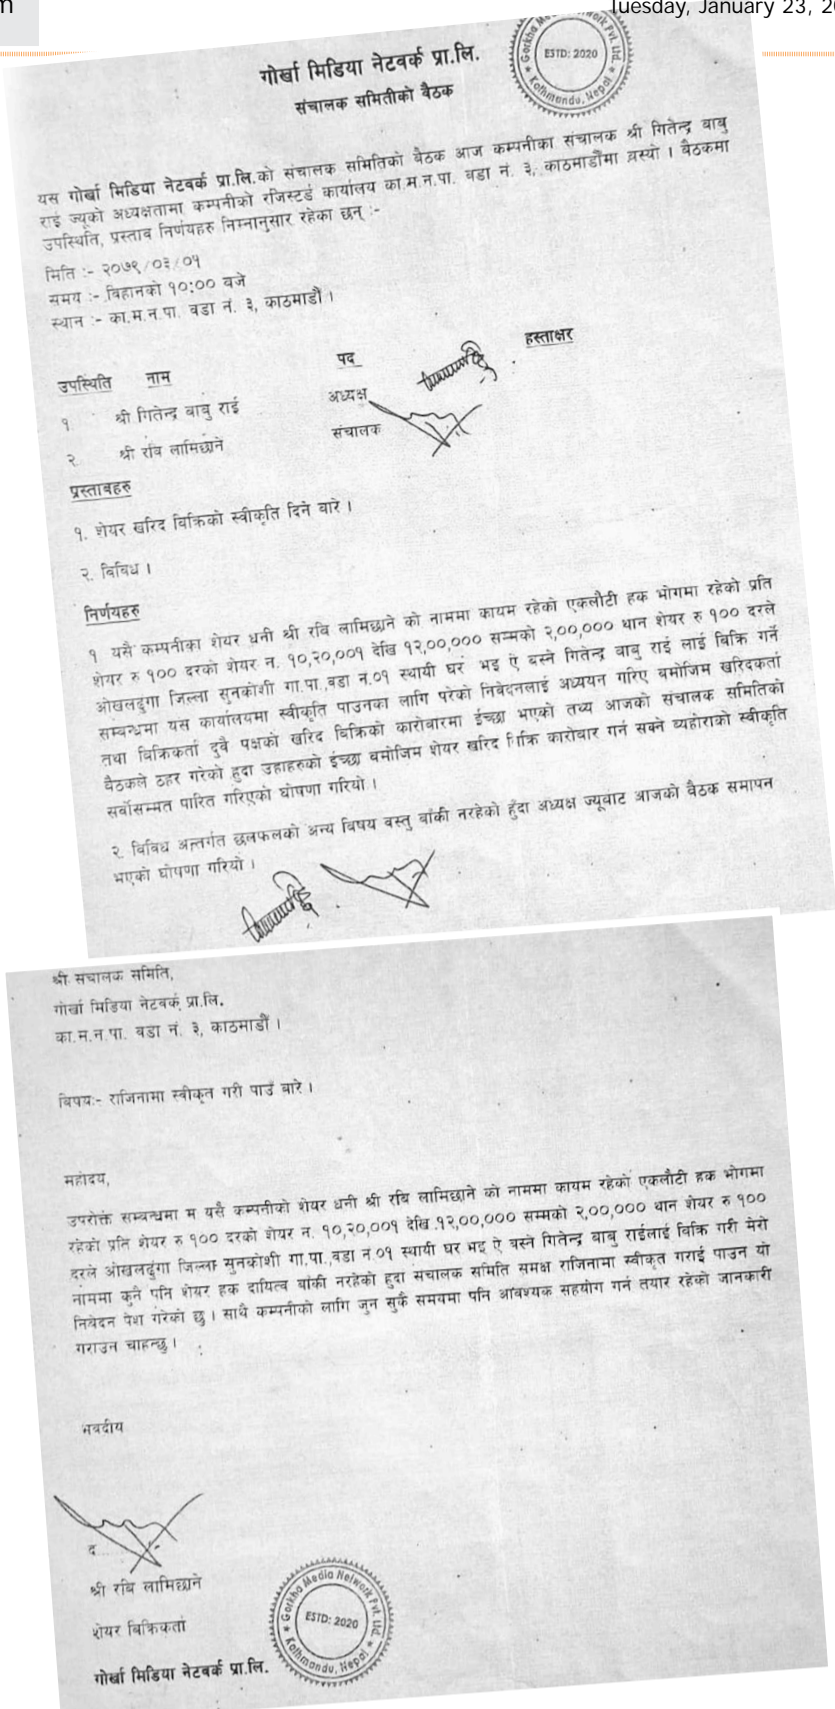 m
Tuesday, January 23, 2
गोर्खा मिडिया नेटवर्क प्रा.लि.
संचालक समितीको बैठक
Gorkha Media Network Pvt. Ltd.
ESTD: 2020
Kathmandu, Nepal
यस गोर्खा मिडिया नेटवर्क प्रा.लि.को संचालक समितिको बैठक आज कम्पनीका संचालक श्री गितेन्द्र बाबु
राई ज्यूको अध्यक्षतामा कम्पनीको रजिस्टर्ड कार्यालय का.म.न.पा. वडा नं. ३, काठमाडौंमा बस्यो । बैठकमा
उपस्थिति, प्रस्ताव निर्णयहरु निम्नानुसार रहेका छन् :-
मिति :- २०७९/०३/०५
समय :- बिहानको १०:०० बजे
स्थान :- का.म.न.पा. वडा नं. ३, काठमाडौं ।
उपस्थिति नाम पद हस्ताक्षर
१ श्री गितेन्द्र बाबु राई अध्यक्ष
२. श्री रबि लामिछाने संचालक
प्रस्ताबहरु
१. शेयर खरिद बिक्रिको स्वीकृति दिने बारे ।
२. बिबिध ।
निर्णयहरु
१ यसै कम्पनीका शेयर धनी श्री रबि लामिछाने को नाममा कायम रहेको एकलौटी हक भोगमा रहेको प्रति
शेयर रु १०० दरको शेयर न. १०,२०,००१ देखि १२,००,००० सम्मको २,००,००० थान शेयर रु १०० दरले
ओखलढुंगा जिल्ला सुनकोशी गा.पा.,वडा नं.०१ स्थायी घर भइ ऐ बस्ने गितेन्द्र बाबु राई लाई बिक्रि गर्ने
सम्बन्धमा यस कार्यालयमा स्वीकृति पाउनका लागि परेको निवेदनलाई अध्ययन गरिए बमोजिम खरिदकर्ता
तथा बिक्रिकर्ता दुवै पक्षको खरिद बिक्रिको कारोबारमा ईच्छा भएको तथ्य आजको संचालक समितिको
बैठकले ठहर गरेको हुदा उहाहरुको ईच्छा बमोजिम शेयर खरिद बिक्रि कारोबार गर्न सक्ने ब्यहोराको स्वीकृति
सर्वोसम्मत पारित गरिएको घोषणा गरियो ।
२ बिबिध अन्तर्गत छलफलको अन्य बिषय वस्तु बाँकी नरहेको हुँदा अध्यक्ष ज्यूबाट आजको बैठक समापन
भएको घोषणा गरियो ।
श्री संचालक समिति,
गोर्खा मिडिया नेटवर्क प्रा.लि.
का.म.न.पा. वडा नं. ३, काठमाडौं ।
बिषयः- राजिनामा स्वीकृत गरी पाउँ बारे ।
महोदय,
उपरोक्त सम्बन्धमा म यसै कम्पनीको शेयर धनी श्री रबि लामिछाने को नाममा कायम रहेको एकलौटी हक भोगमा
रहेको प्रति शेयर रु १०० दरको शेयर न. १०,२०,००१ देखि १२,००,००० सम्मको २,००,००० थान शेयर रु १००
दरले ओखलढुंगा जिल्ला सुनकोशी गा.पा.,वडा नं.०१ स्थायी घर भइ ऐ बस्ने गितेन्द्र बाबु राईलाई बिक्रि गरी मेरो
नाममा कुनै पनि शेयर हक दायित्व बाँकी नरहेको हुदा संचालक समिति समक्ष राजिनामा स्वीकृत गराई पाउन यो
निबेदन पेश गरेको छु । साथै कम्पनीको लागि जुन सुकै समयमा पनि आवश्यक सहयोग गर्न तयार रहेको जानकारी
गराउन चाहन्छु ।
भवदीय
द
श्री रबि लामिछाने
शेयर बिक्रिकर्ता
गोर्खा मिडिया नेटवर्क प्रा.लि.
Gorkha Media Network Pvt. Ltd.
ESTD: 2020
Kathmandu, Nepal